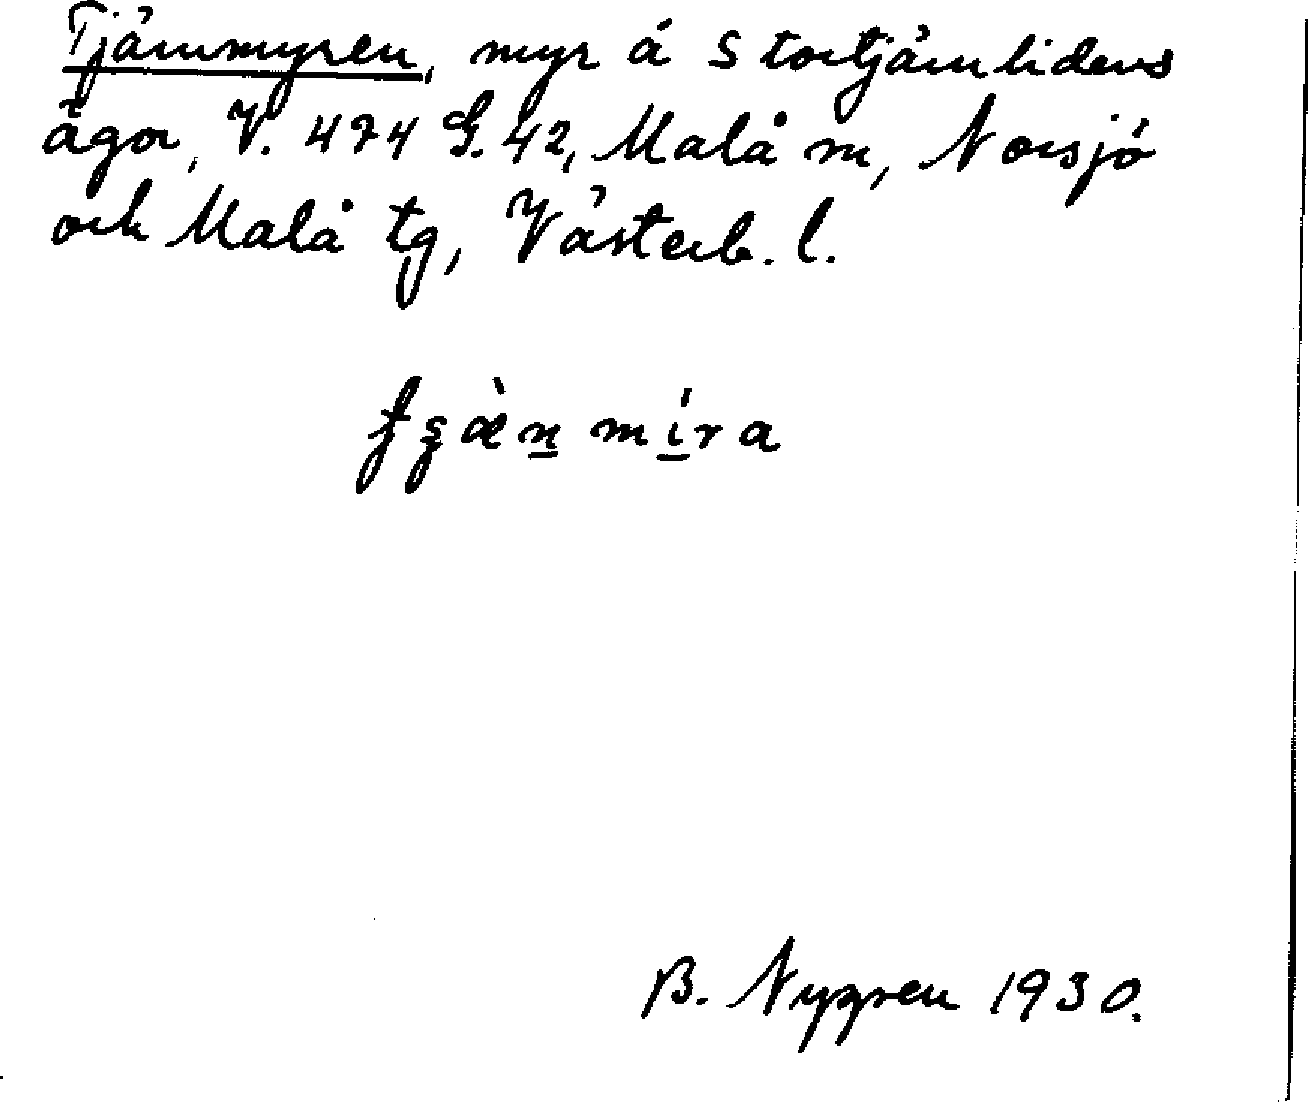 Tjärnmyren, myr å Stortjärnlidens
ägor, V. 474 G. 42, Malå sn, Norsjö
och Malå tg, Västerb. l.
B. Nygren 1930.